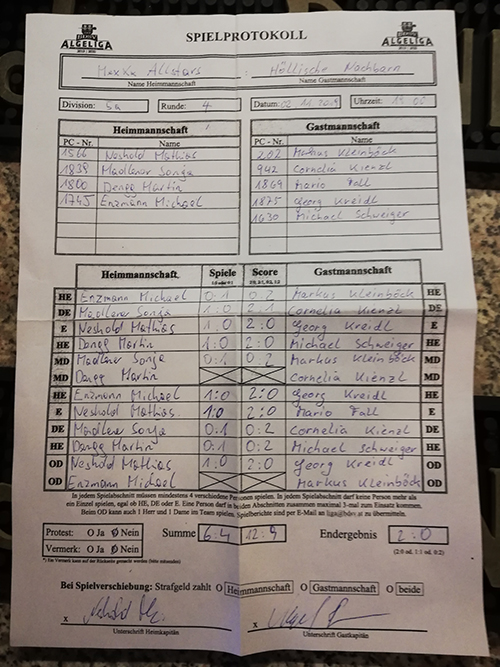 ALGELIGA SPIELPROTOKOLL ALGELIGA
Maxxa Allstars : Höllische Nachbarn
Name Heimmannschaft Name Gastmannschaft
Division: 5a Runde: 4 Datum: 02 11 2019 Uhrzeit: 19 05
Heimmannschaft
PC - Nr. Name
1566 Neshold Mathias
1839 Madlener Sonja
1800 Dangg Martin
1745 Enzmann Michael
Gastmannschaft
PC - Nr. Name
202 Markus Kleinböck
942 Cornelia Kienzl
1869 Mario Fall
1875 Georg Kreidl
1630 Michael Schweiger
Heimmannschaft Spiele Score Gastmannschaft
HE Enzmann Michael 0:1 0:2 Markus Kleinböck HE
DE Madlener Sonja 1:0 2:1 Cornelia Kienzl DE
E Neshold Mathias 1:0 2:0 Georg Kreidl E
HE Dangg Martin 1:0 2:0 Michael Schweiger HE
MD Madlener Sonja 0:1 0:2 Markus Kleinböck MD
MD Dangg Martin Cornelia Kienzl MD
HE Enzmann Michael 1:0 2:0 Georg Kreidl HE
E Neshold Mathias 1:0 2:0 Mario Fall E
DE Madlener Sonja 0:1 0:2 Cornelia Kienzl DE
HE Dangg Martin 0:1 0:2 Michael Schweiger HE
OD Neshold Mathias 1:0 2:0 Georg Kreidl OD
OD Enzmann Michael Markus Kleinböck OD
In jedem Spielabschnitt müssen mindestens 4 verschiedene Personen spielen. In jedem Spielabschnitt darf keine Person mehr als
ein Einzel spielen, egal ob HE, DE oder E. Eine Person darf in beiden Abschnitten zusammen maximal 3-mal zum Einsatz kommen.
Beim OD kann auch 1 Herr und 1 Dame im Team spielen. Spielberichte sind per E-Mail an liga@bdsv.at zu übermitteln.
Protest: O Ja O Nein Summe 6:4 12:9 Endergebnis 2:0
Vermerk: O Ja O Nein (2:0 od. 1:1 od. 0:2)
Bei Spielverschiebung: Strafgeld zahlt O Heimmannschaft O Gastmannschaft O beide
x x
Unterschrift Heimkapitän Unterschrift Gastkapitän